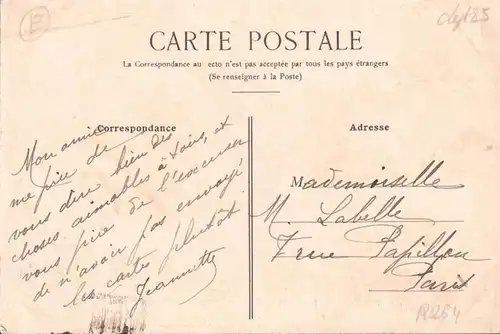 E
dept 85
CARTE POSTALE
La Correspondance au ecto n'est pas acceptée par tous les pays étrangers
(Se renseigner à la Poste)
Correspondance
Adresse
Mon amie
me prie de
vous dire bien des
choses aimables à tous, et
vous prie de l'excuser
de n'avoir pas envoyé
les cartes plutôt
Jeannette
Mademoiselle
M. Labelle
7 rue Papillon
Paris
R264